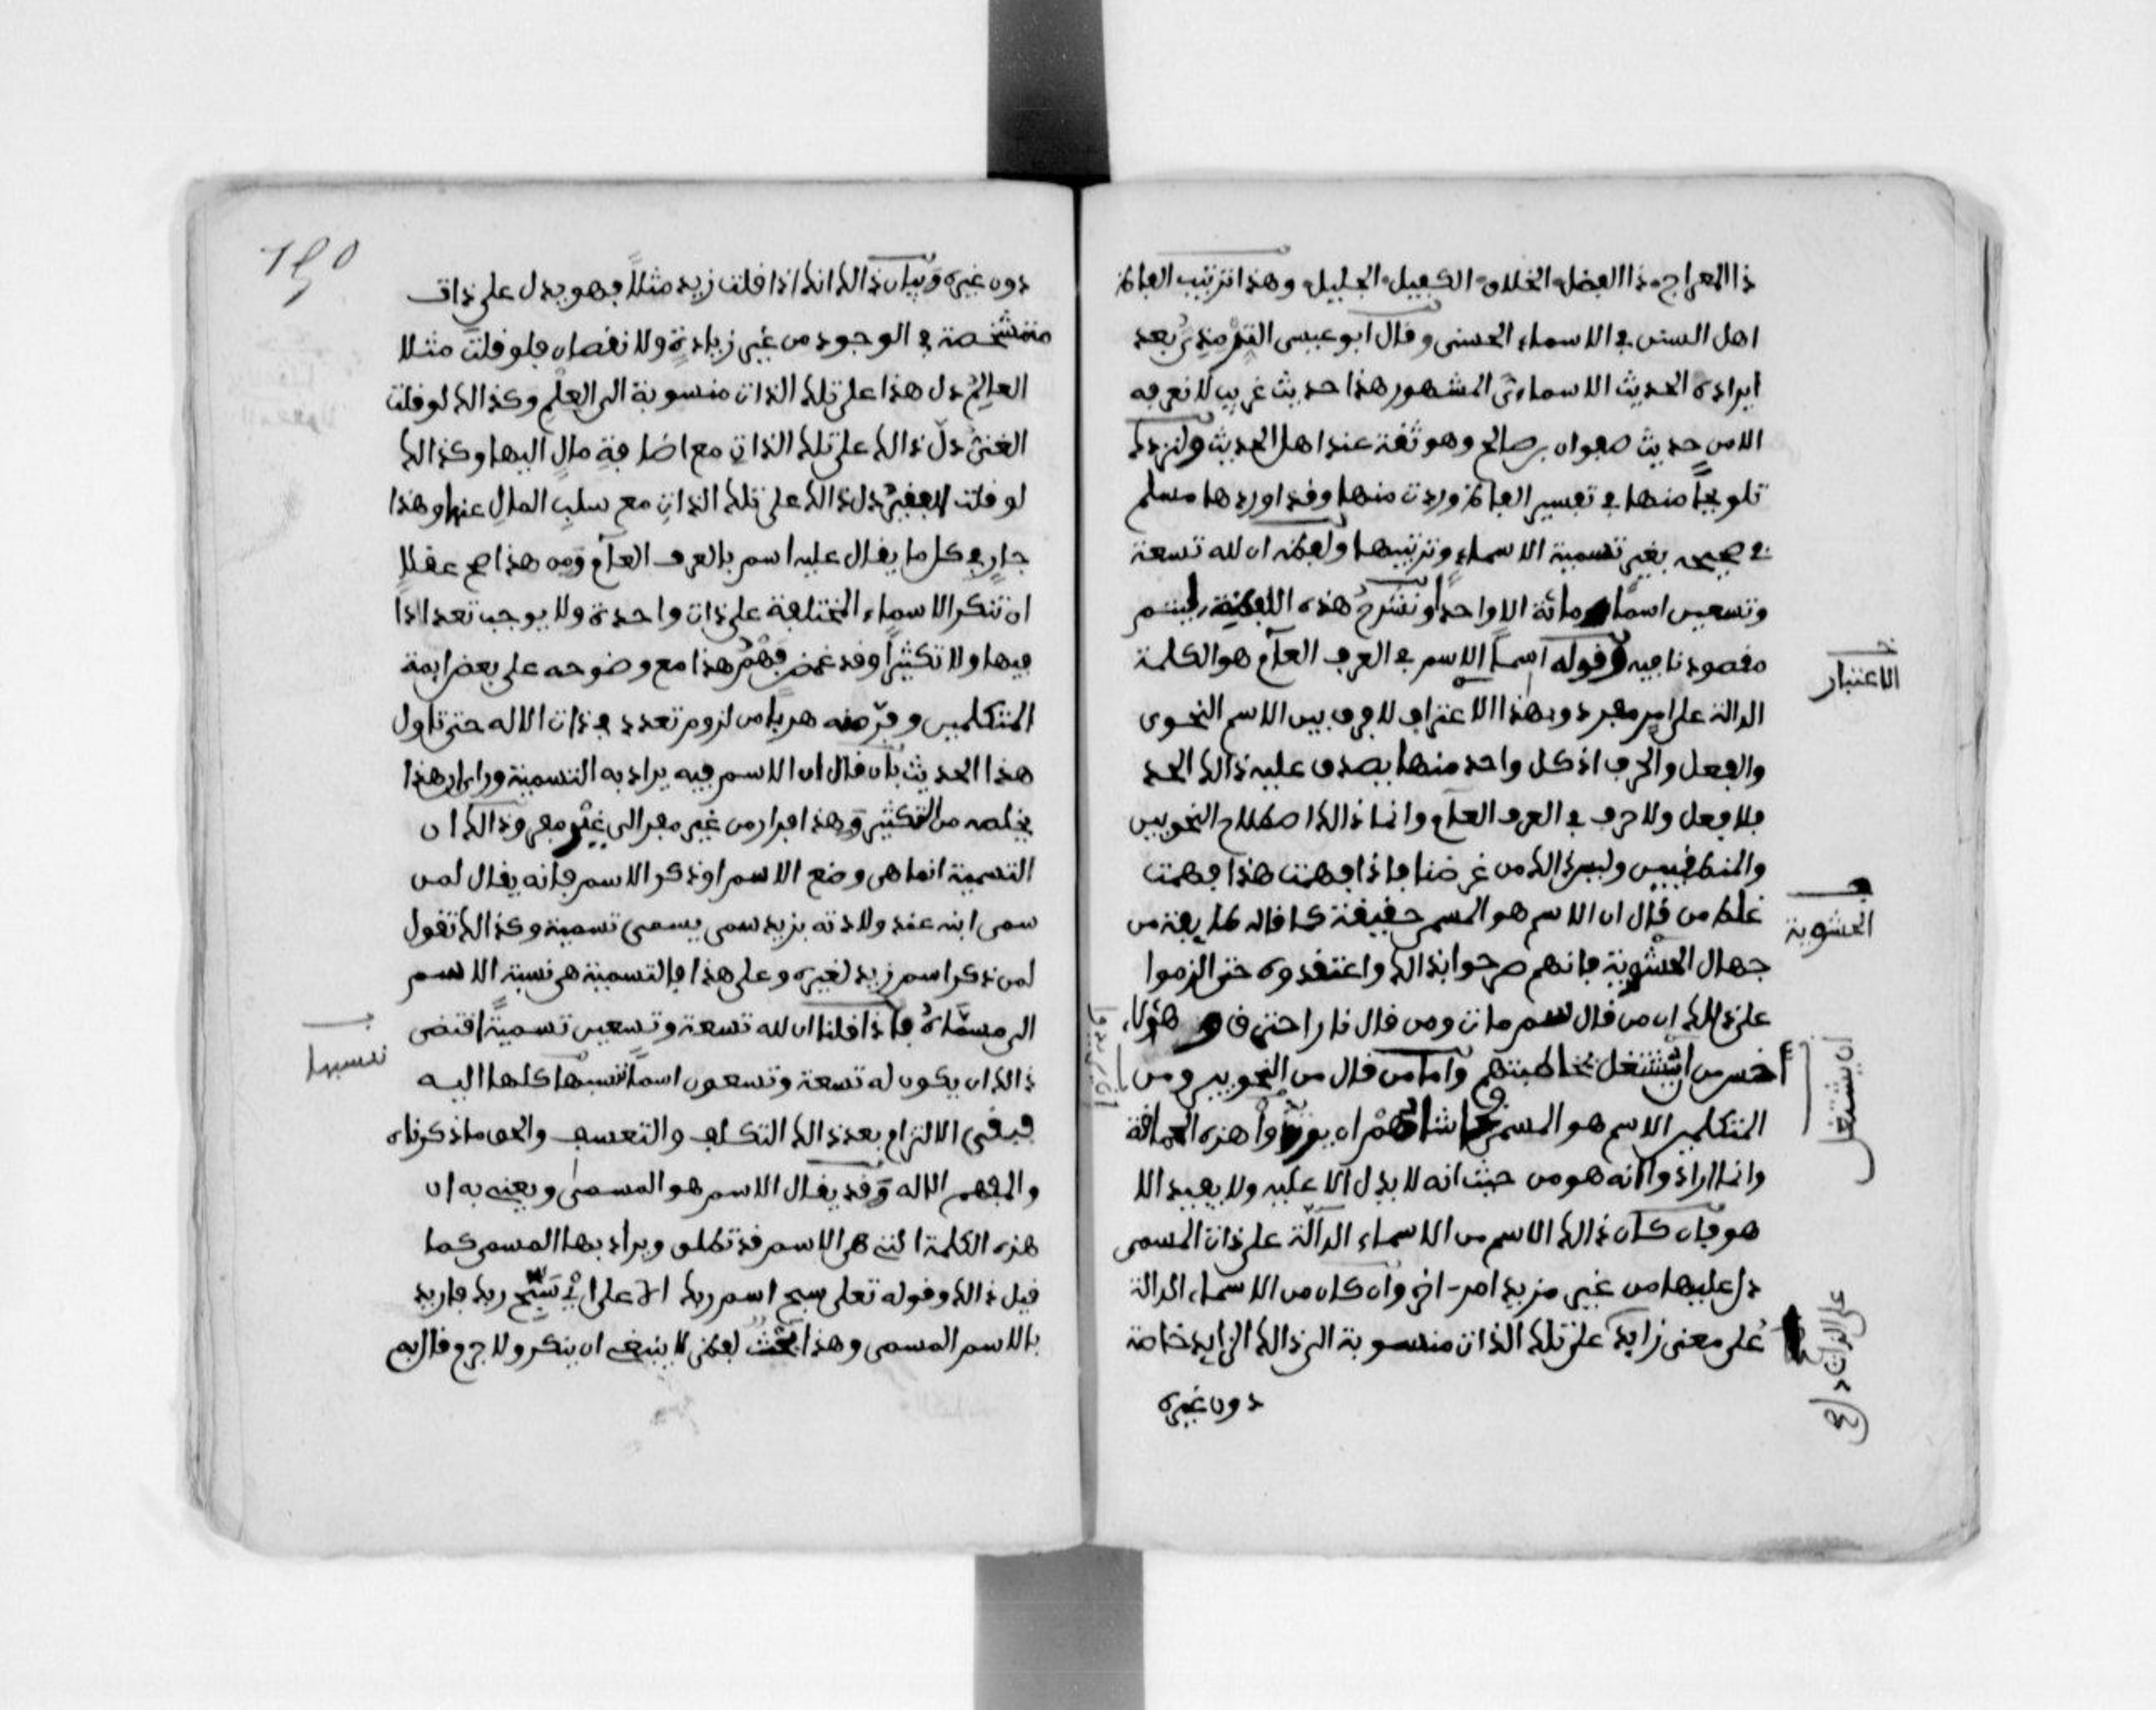 ذا المعراج ذا الفضل الخلاق الكفيل الجليل وهذا ترتيب
اهل السنن في الاسماء الحسنى وقال ابو عيسى الترمذي بعد
ايراده الحديث المشهور هذا حديث غريب لا نعرفه
الا من حديث صفوان بن صالح وهو ثقة عند اهل الحديث
تلويحا منها في تفسير وردت منها وقد اوردها مسلم
في صحيحه بغير تسمية الاسماء وترتيبها ولفظه ان لله تسعة
وتسعين اسما مائة الا واحدا ونشرح هذه
مقصودنا فيه وقوله اسما الاسم في العرف العام هو الكلمة
الدالة على امر مفرد وبهذا لا فرق بين الاسم النحوي
والفعل والحرف اذ كل واحد منها يصدق عليه ذالك الحد
فلا فعل ولا حرف في العرف العام وانما ذالك اصطلاح النحويين
والمنطقيين وليس ذالك من غرضنا فاذا فهمت هذا فهمت
غلط من قال ان الاسم هو المسمى حقيقة كما قاله طايفة من
جهال الحشوية فانهم صرحوا بذالك واعتقدوه حتى الزموا
على ذالك ان من قال سم مات ومن قال نارا احترق وهؤلاء
اخس من ان يشتغل بمخاطبتهم واما من قال من النحويين ومن
المتكلمين الاسم هو المسمى فحاشاهم ان هذه الحماقة
وانما ارادوا انه هو من حيث انه لا يدل الا عليه ولا يفيد الا
هو فان كان ذالك الاسم من الاسماء الدالة على ذات المسمى
دل عليها من غير مزيد امر اخر وان كان من الاسماء الدالة
على معنى زايد على تلك الذات منسوبة الى ذالك الزايد خاصة
دون غيره
الاعتبار
الحشوية
ان يشتغل
على الذات دل
دون غيره وبيان ذالك انك اذا قلت زيد مثلا فهو يدل على ذات
متشخصة في الوجود من غير زيادة ولا نقصان فلو قلت مثلا
العالم دل هذا على تلك الذات منسوبة الى العلم وكذالك لو قلت
الغني دل ذالك على تلك الذات مع اضافة مال اليها وكذالك
لو قلت الفقير دل ذالك على تلك الذات مع سلب المال عنها وهذا
جار في كل ما يقال عليه اسم بالعرف العام ومن هذا صح عقلا
ان تتكثر الاسماء المختلفة على ذات واحدة ولا يوجب تعدادا
فيها ولا تكثيرا وقد غمض فهم هذا مع وضوحه على بعض ايمة
المتكلمين وفر منه هربا من لزوم تعدد في ذات الاله حتى تاول
هذا الحديث بان قال ان الاسم فيه يراد به التسمية وراى ان هذا
يخلصه من التكثير وهذا فرار من غير مفر الى غير مفر وذالك ان
التسمية انما هي وضع الاسم او ذكر الاسم فانه يقال لمن
سمى ابنه عند ولادته بزيد سمى يسمي تسمية وكذالك تقول
لمن ذكر اسم زيد لغيره وعلى هذا فالتسمية هي نسبة الاسم
الى مسماه فاذا قلنا ان لله تسعة وتسعين تسمية اقتضى
ذالك ان يكون له تسعة وتسعون اسما ننسبها كلها اليه
فبقي الالتزام بعد ذالك التكلف والتعسف والحق ما ذكرناه
والمفهم الاله وقد يقال الاسم هو المسمى ويعني به ان
هذه الكلمة التي هي الاسم قد تطلق ويراد بها المسمى كما
قيل ذالك وقوله تعلى سبح اسم ربك الاعلى اي سبح ربك فاريد
بالاسم المسمى وهذا بحث لفظي لا ينبغي ان ينكر ولا جرم قال بم
ننسبها